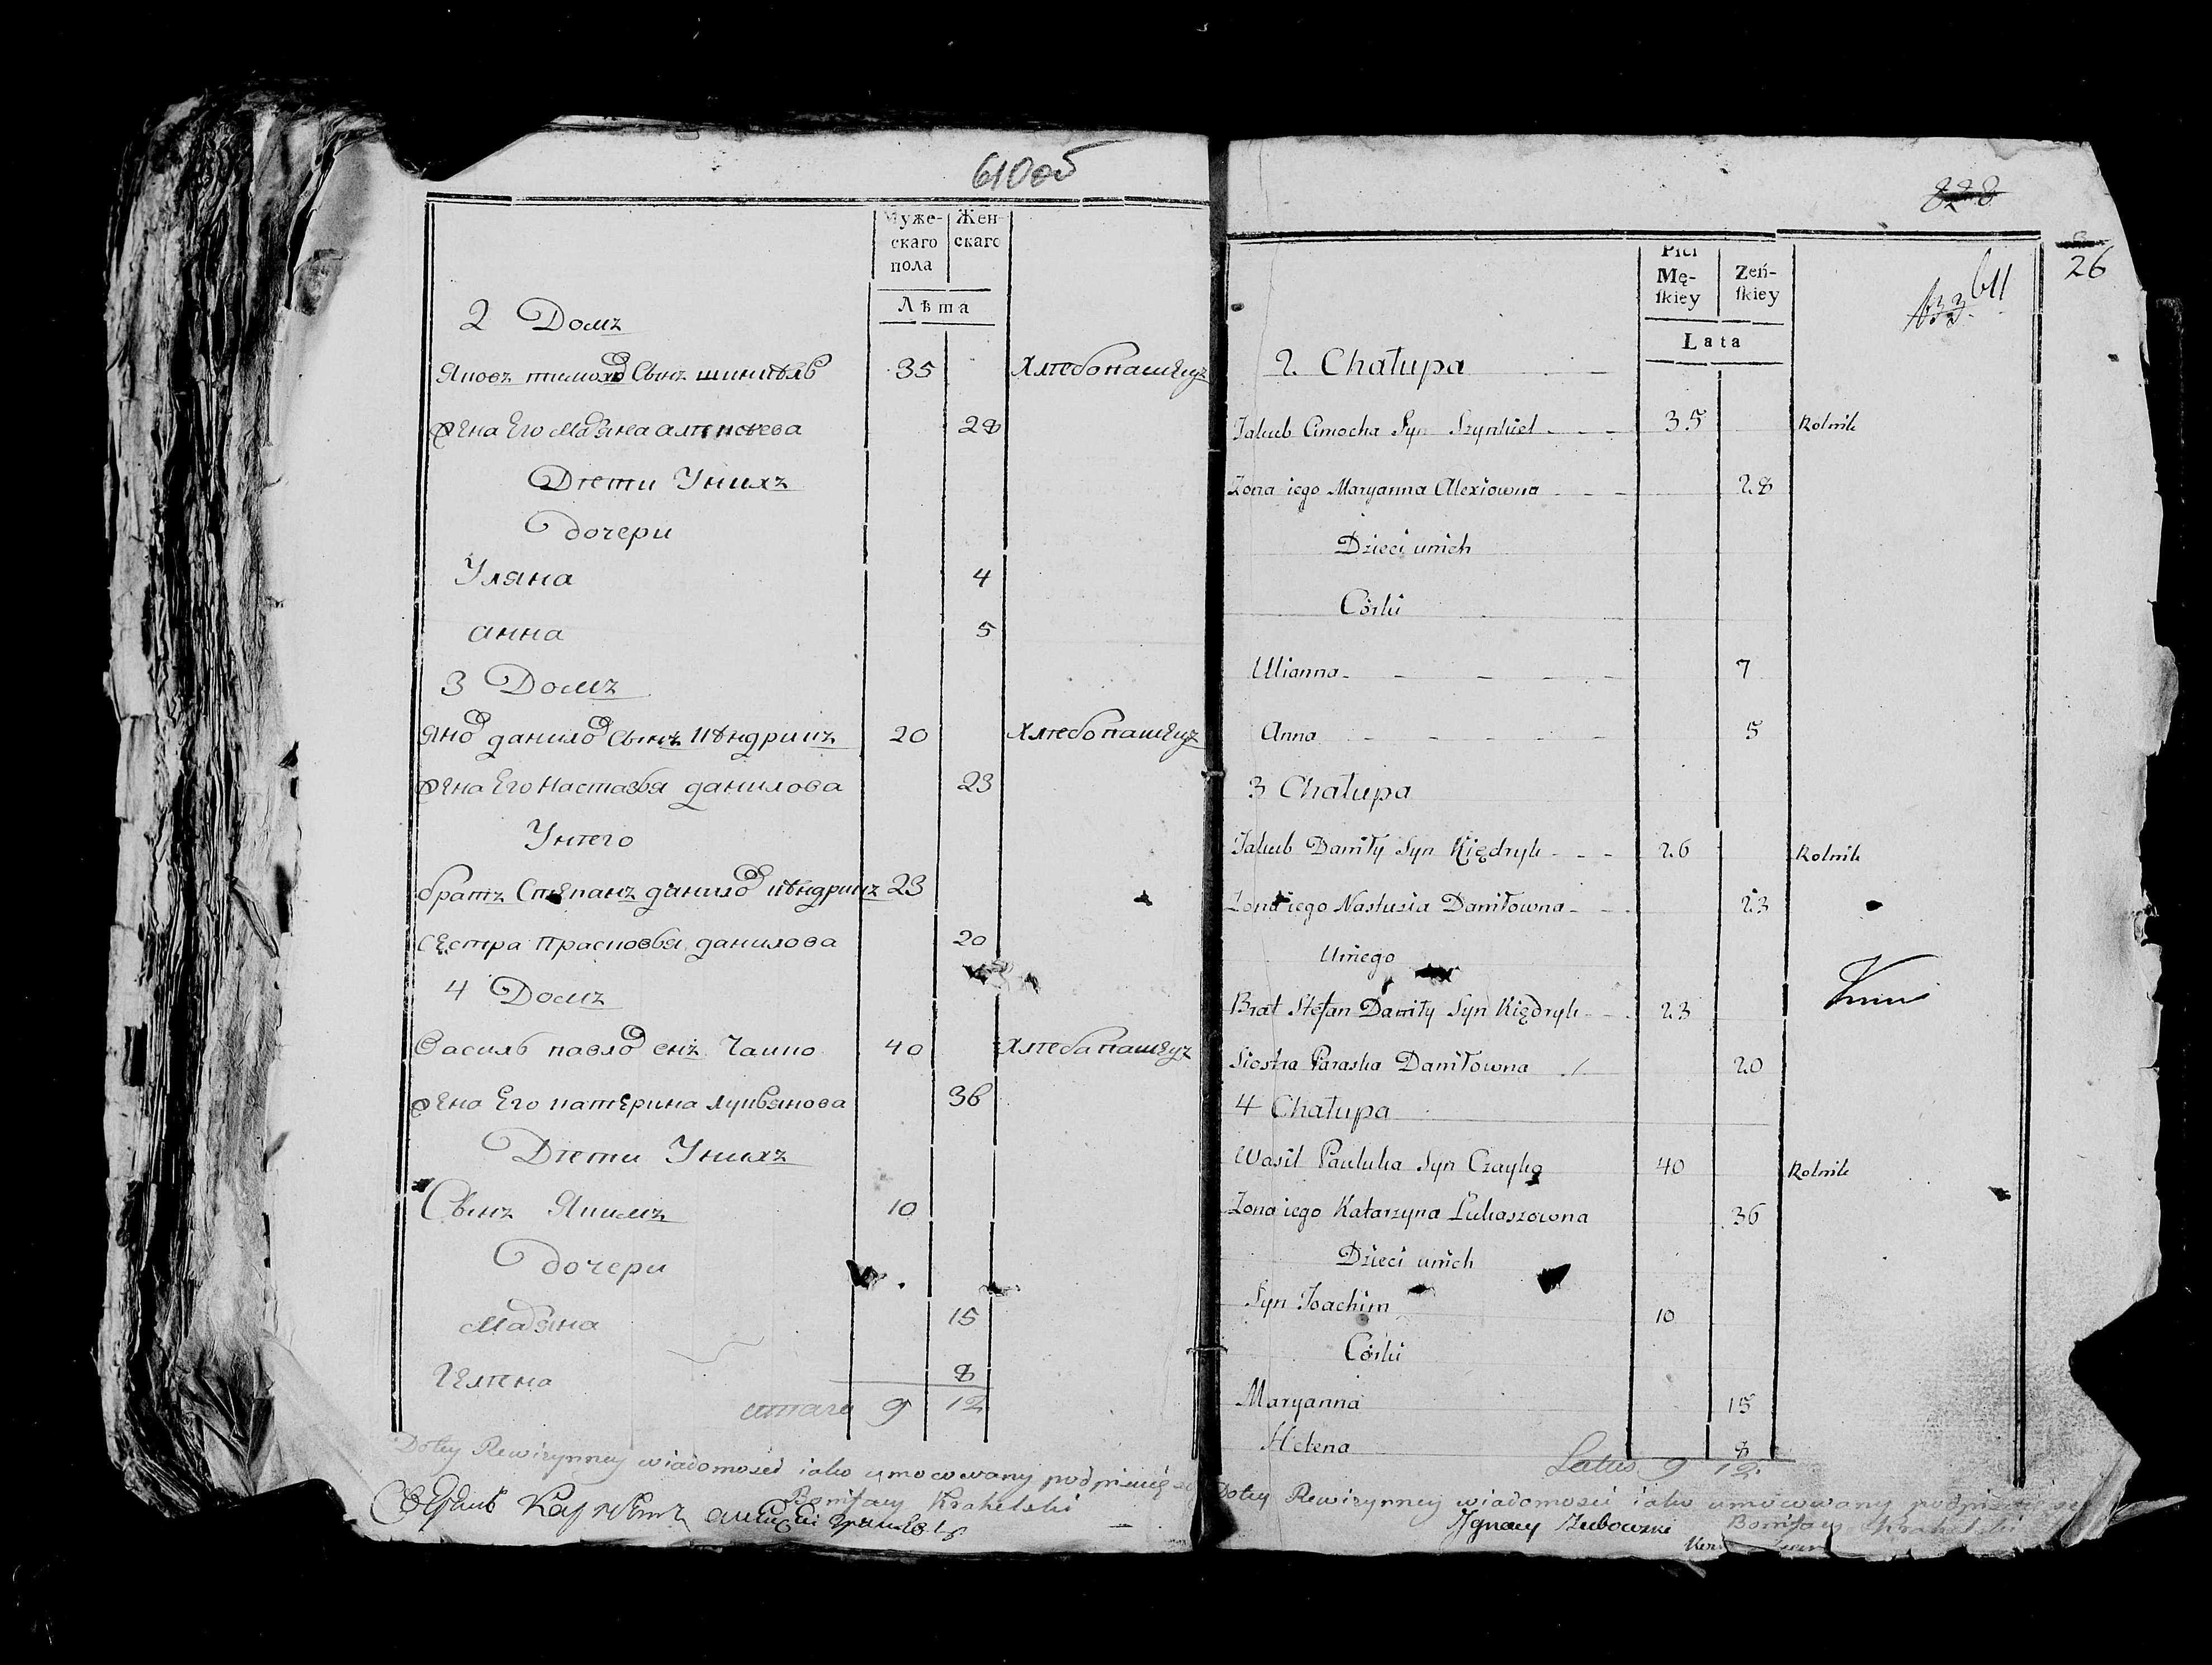 610об
Муже-
скаго
пола
Жен-
скаго
Лѣта
2 Домъ
Яковъ тимохов Сынъ шинкѣль 35 Хлебопашецъ
жена Его Марьяна алексеева 28
Дѣти Унихъ
дочери
Уляна 4
анна 5
3 Домъ
данилов Сынъ кѣндрикъ 20 Хлебопашецъ
жена Его Настазья данилова 23
Унего
братъ Степанъ данилов кѣндрикъ 23
сестра Прасковья данилова 20
4 Домъ
Василь павлов снъ Чайко 40 Хлебапашецъ
жена Его катерина лукьянова 36
Дѣти Унихъ
Сынъ Якимъ 10
дочери
Марьяна 15
Гелена 8
итаго 9 12
Do tey Rewizynney wiadomości iako umocowany podpisuię się
Bonifacy Krahelski
828
26
133 611
Płci
Mę-
skiey
Żeń-
skiey
Lata
2 Chałupa
Jakub Cimocha Syn Szynkiel 35 Rolnik
Zona iego Maryanna Alexiowna 28
Dzieci unich
Córki
Ulianna 7
Anna 5
3 Chałupa
Jakub Daniły Syn Kiędryk 26 Rolnik
Zona iego Nastusia Daniłowna 23
Uniego
Brat Stefan Daniły Syn Kiędryk 23
Siostra Paraska Daniłowna 20
4 Chałupa
Wasil Pauluka Syn Czayko 40 Rolnik
Zona iego Katarzyna Łukaszowna 36
Dzieci unich
Syn Joachim 10
Córki
Maryanna 15
Helena 8
Latus 9 12
Do tey Rewizynney wiadomości iako umocowany podpisuię się
Ignacy Bonifacy Krahelski